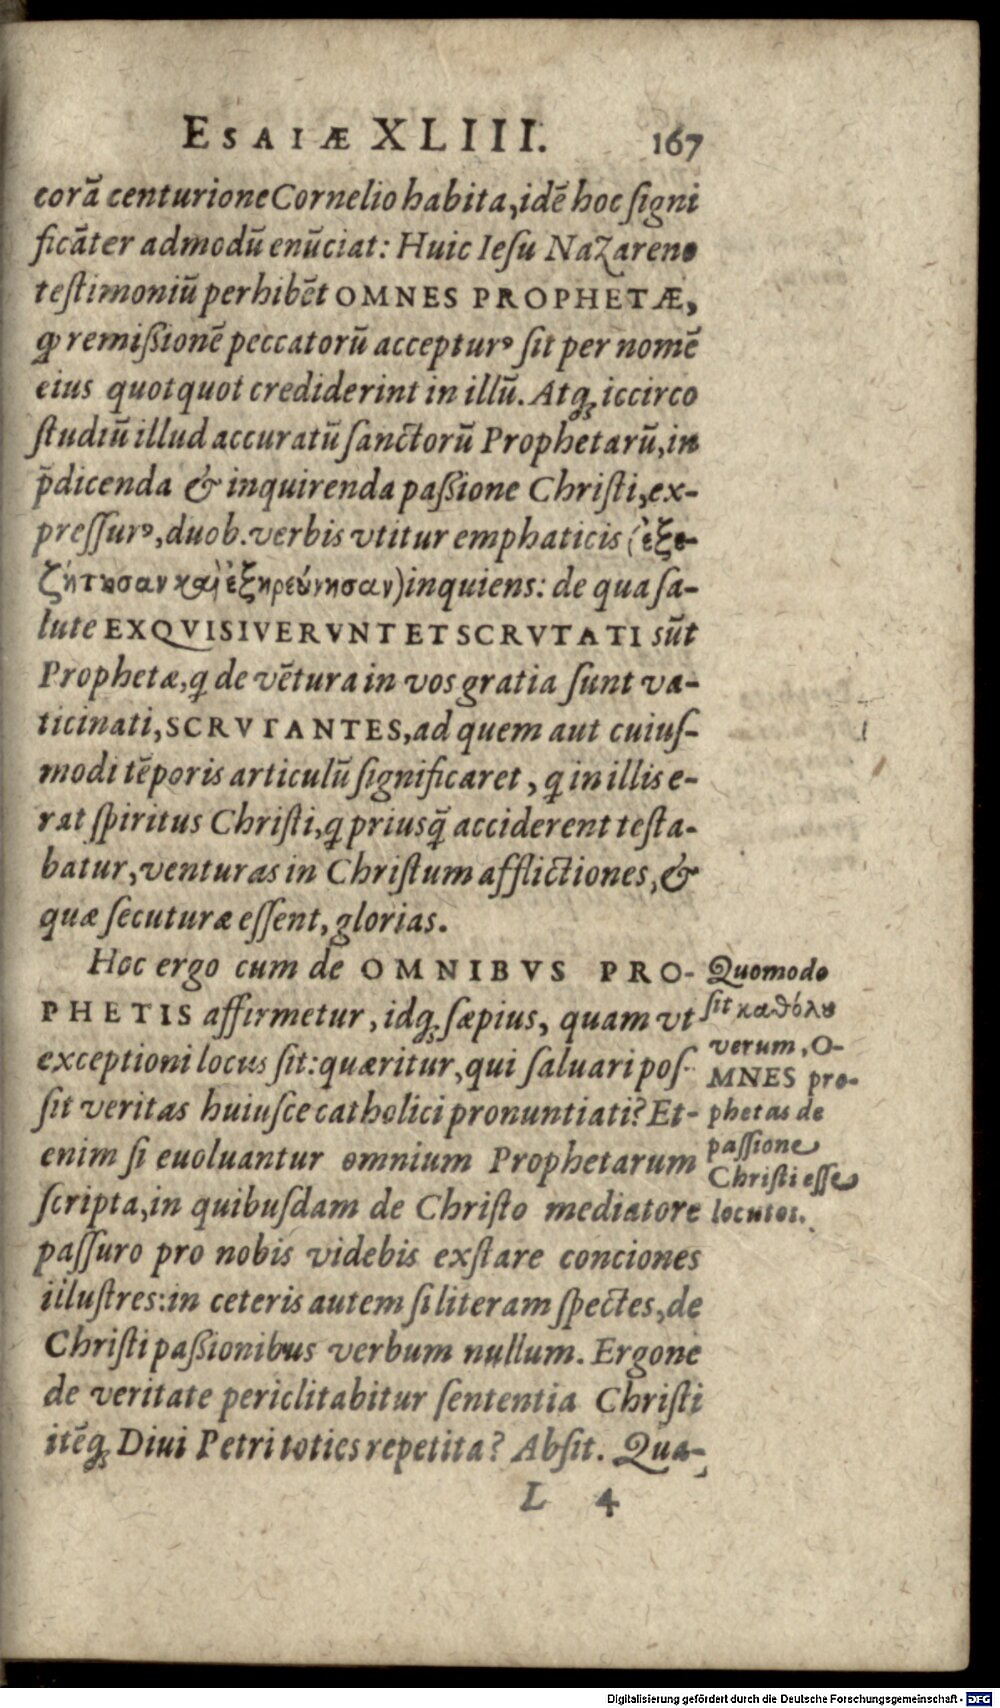 ESAIÆ XLIII. 167
corā centurione Cornelio habita, idē hoc signi
ficāter admodū enūciat: Huic Iesu NaZareno
testimoniū perhibēt OMNES PROPHETÆ,
ꝙ remißionē peccatorū acceptur⁹ sit per nomē
eius quotquot crediderint in illū. Atq; iccirco
studiū illud accuratū sanctorū Prophetarū, in
p̄dicenda & inquirenda paßione Christi, ex-
pressur⁹, duob. verbis vtitur emphaticis (ἐξε-
ζήτησαν καὶ ἐξηρεύνησαν) inquiens: de qua sa-
lute EXQVISIVERVNT ET SCRVTATI sūt
Prophetæ, q de vētura in vos gratia sunt va-
ticinati, SCRVTANTES, ad quem aut cuius-
modi tēporis articulū significaret, q in illis e-
rat spiritus Christi, q priusq̄ acciderent testa-
batur, venturas in Christum afflictiones, &
quæ secuturæ essent, glorias.
Hoc ergo cum de OMNIBVS PRO-
PHETIS affirmetur, idq; sæpius, quam vt
exceptioni locus sit: quæritur, qui saluari pos-
sit veritas huiusce catholici pronuntiati? Et-
enim si euoluantur omnium Prophetarum
scripta, in quibusdam de Christo mediatore
passuro pro nobis videbis exstare conciones
illustres: in ceteris autem si literam spectes, de
Christi paßionibus verbum nullum. Ergone
de veritate periclitabitur sententia Christi
itēq; Diui Petri toties repetita? Absit. Qua-
L 4
Quomodo
sit καθόλου
verum, O-
MNES pro-
phetas de
passione
Christi esse
locutos.
Digitalisierung gefördert durch die Deutsche Forschungsgemeinschaft - DFG